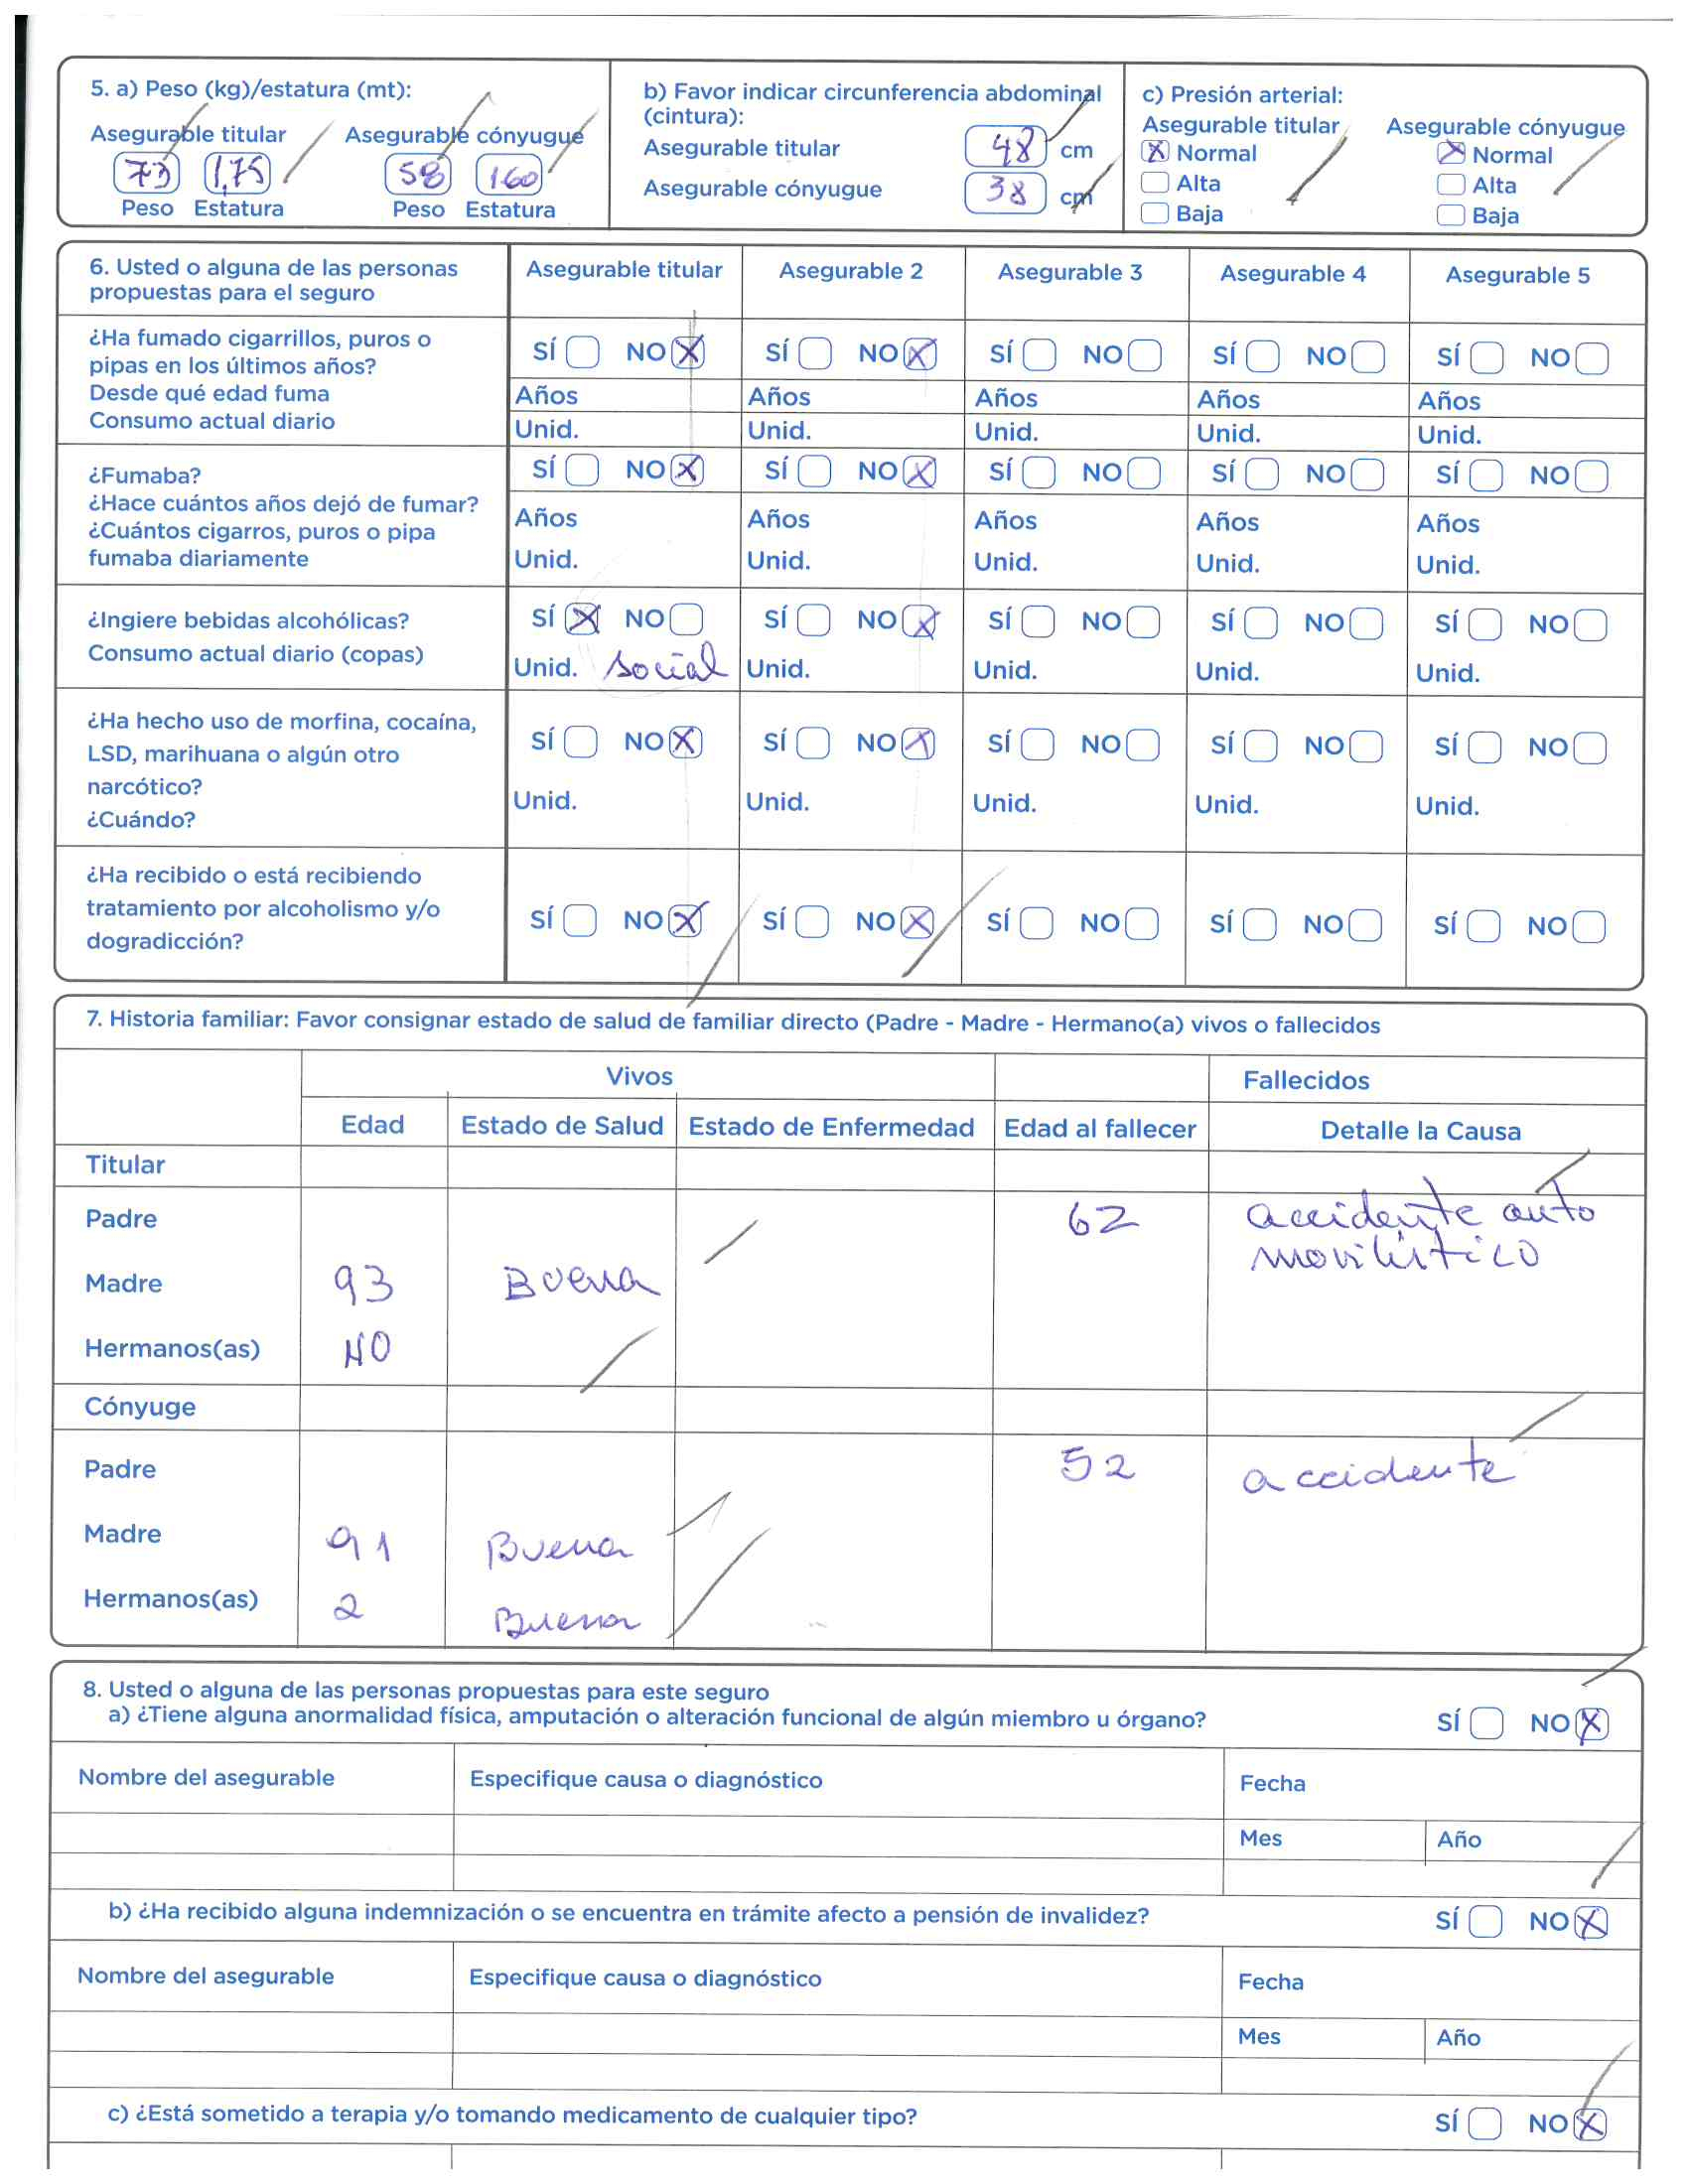 5. a) Peso (kg)/estatura (mt):
Asegurable titular Asegurable cónyugue
73 1,75 58 160
Peso Estatura Peso Estatura
b) Favor indicar circunferencia abdominal
(cintura):
Asegurable titular 48 cm
Asegurable cónyugue 38 cm
c) Presión arterial:
Asegurable titular Asegurable cónyugue
X Normal X Normal
Alta Alta
Baja Baja
6. Usted o alguna de las personas
propuestas para el seguro
Asegurable titular Asegurable 2 Asegurable 3 Asegurable 4 Asegurable 5
¿Ha fumado cigarrillos, puros o
pipas en los últimos años?
Desde qué edad fuma
Consumo actual diario
SÍ NO X SÍ NO X SÍ NO SÍ NO SÍ NO
Años Años Años Años Años
Unid. Unid. Unid. Unid. Unid.
¿Fumaba?
¿Hace cuántos años dejó de fumar?
¿Cuántos cigarros, puros o pipa
fumaba diariamente
SÍ NO X SÍ NO X SÍ NO SÍ NO SÍ NO
Años Años Años Años Años
Unid. Unid. Unid. Unid. Unid.
¿Ingiere bebidas alcohólicas?
Consumo actual diario (copas)
SÍ X NO SÍ NO X SÍ NO SÍ NO SÍ NO
Unid. social Unid. Unid. Unid. Unid.
¿Ha hecho uso de morfina, cocaína,
LSD, marihuana o algún otro
narcótico?
¿Cuándo?
SÍ NO X SÍ NO X SÍ NO SÍ NO SÍ NO
Unid. Unid. Unid. Unid. Unid.
¿Ha recibido o está recibiendo
tratamiento por alcoholismo y/o
dogradicción?
SÍ NO X SÍ NO X SÍ NO SÍ NO SÍ NO
7. Historia familiar: Favor consignar estado de salud de familiar directo (Padre - Madre - Hermano(a) vivos o fallecidos
Vivos Fallecidos
Edad Estado de Salud Estado de Enfermedad Edad al fallecer Detalle la Causa
Titular
Padre 62 accidente auto
movilístico
Madre 93 Buena
Hermanos(as) NO
Cónyuge
Padre 52 accidente
Madre 91 Buena
Hermanos(as) 2 Buena
8. Usted o alguna de las personas propuestas para este seguro
a) ¿Tiene alguna anormalidad física, amputación o alteración funcional de algún miembro u órgano? SÍ NO X
Nombre del asegurable Especifique causa o diagnóstico Fecha
Mes Año
b) ¿Ha recibido alguna indemnización o se encuentra en trámite afecto a pensión de invalidez? SÍ NO X
Nombre del asegurable Especifique causa o diagnóstico Fecha
Mes Año
c) ¿Está sometido a terapia y/o tomando medicamento de cualquier tipo? SÍ NO X